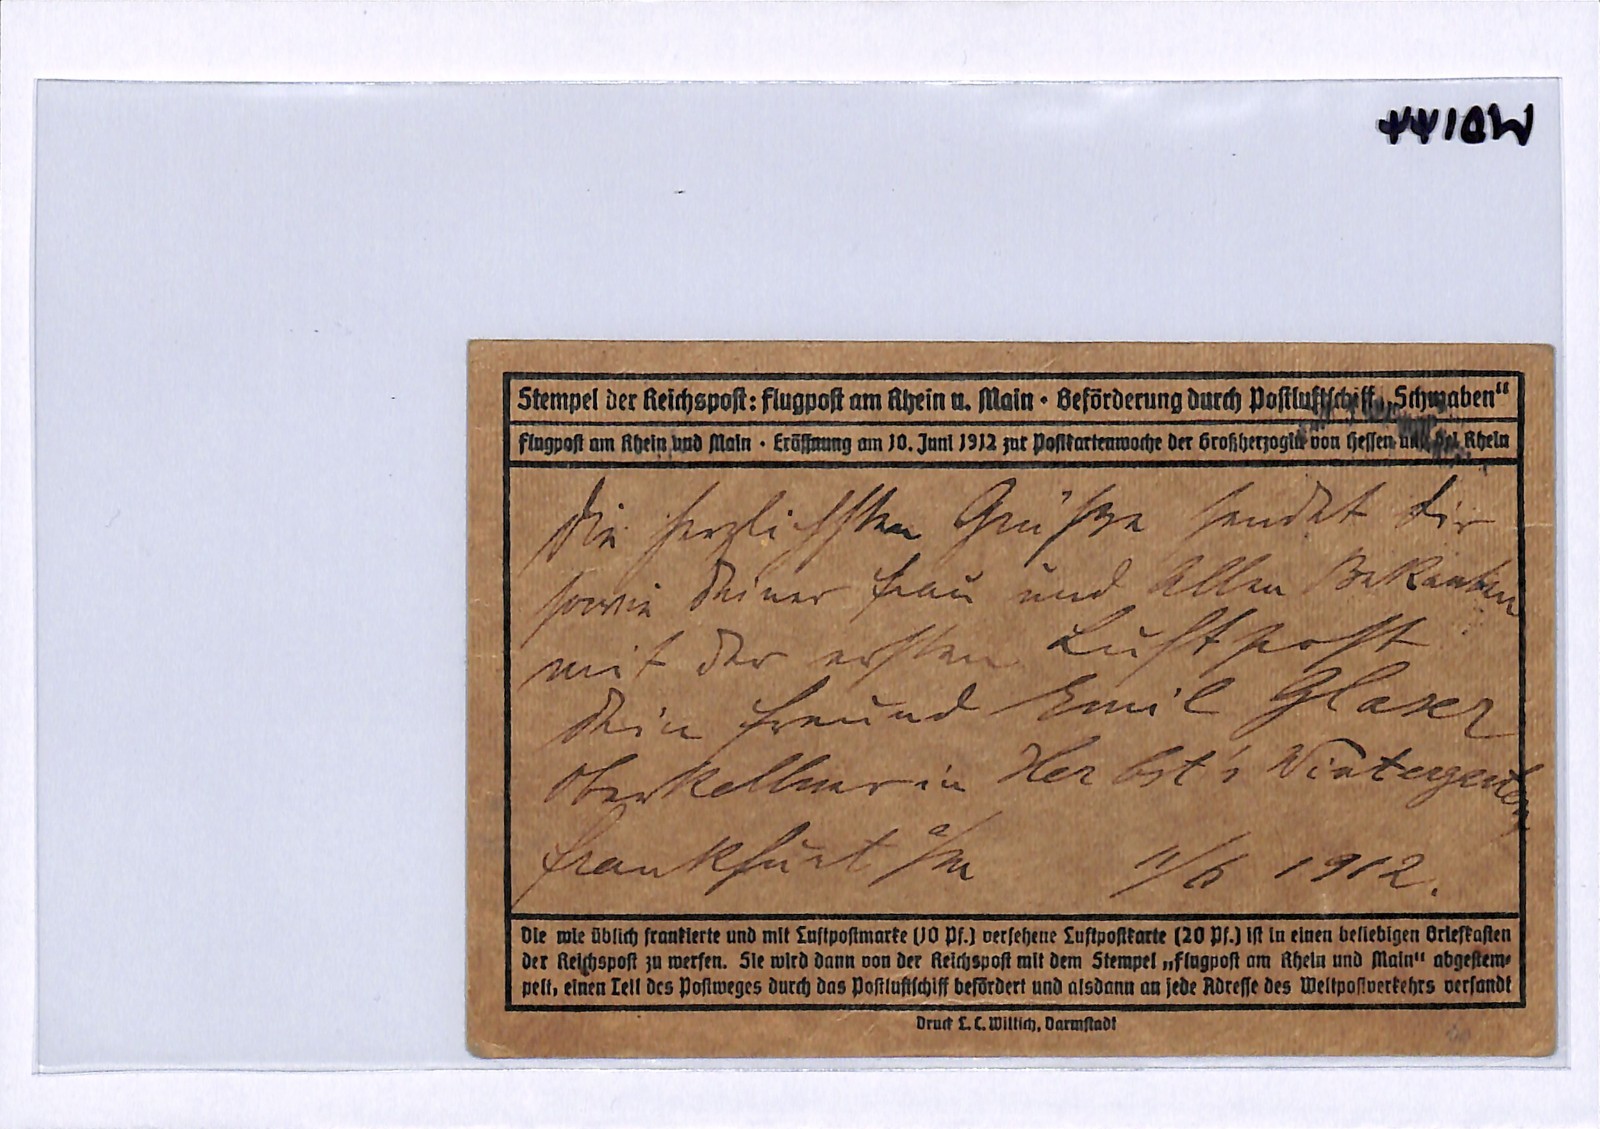 Stempel der Reichspost: Flugpost am Rhein u. Main · Beförderung durch Postluftschiff „Schwaben“
Flugpost am Rhein und Main · Eröffnung am 10. Juni 1912 zur Postkartenwoche der Großherzogin von Hessen und bei Rhein
Die herzlichsten Grüße sendet Dir
sowie Deiner Frau und Allen Bekanten
mit der ersten Luftpost
Dein Freund Emil Glaser
Oberkellner in Herbst's Wintergarten
Frankfurt a/M 11/6 1912.
Die wie üblich frankierte und mit Luftpostmarke (10 Pf.) versehene Luftpostkarte (20 Pf.) ist in einen beliebigen Briefkasten
der Reichspost zu werfen. Sie wird dann von der Reichspost mit dem Stempel „Flugpost am Rhein und Main“ abgestem-
pelt, einen Teil des Postweges durch das Postluftschiff befördert und alsdann an jede Adresse des Weltpostverkehrs versandt
Druck L. C. Wittich, Darmstadt